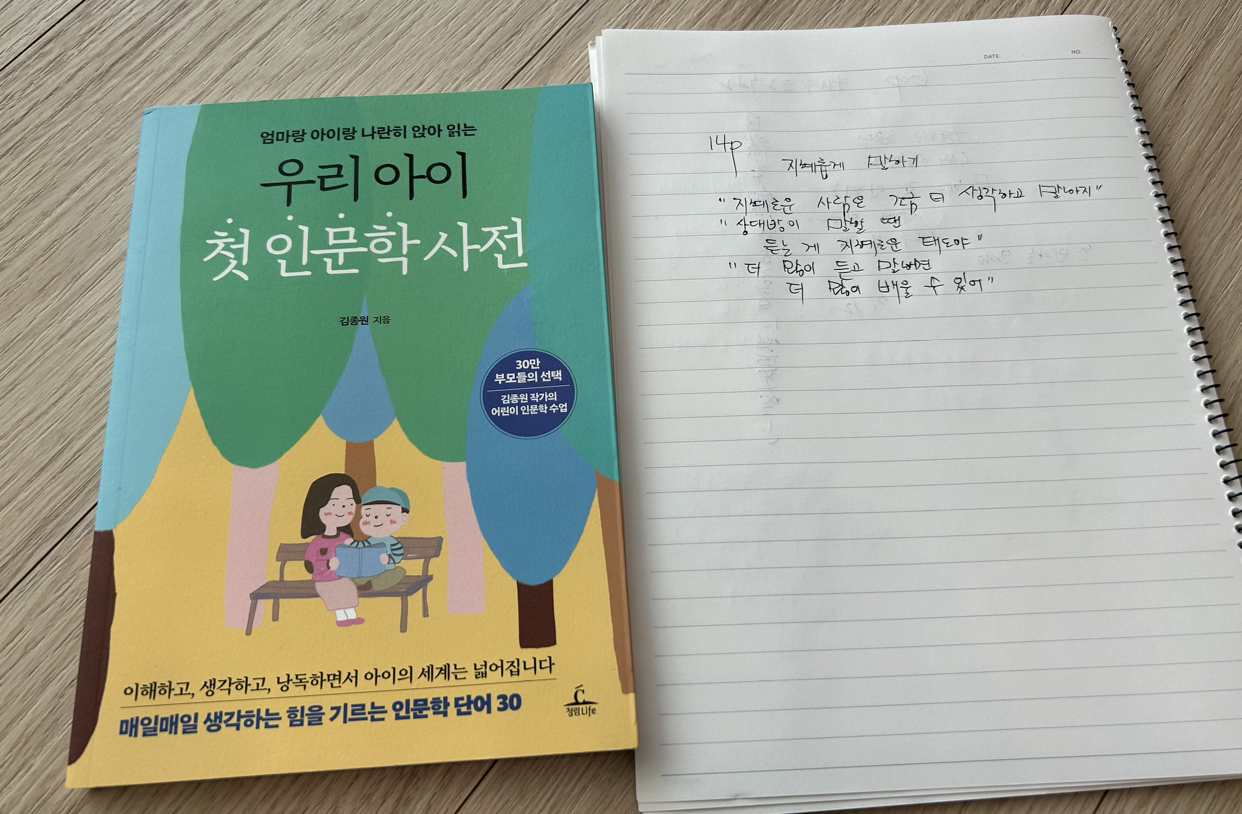 엄마랑 아이랑 나란히 앉아 읽는
우리 아이
첫 인문학 사전
김종원 지음
30만
부모들의 선택
김종원 작가의
어린이 인문학 수업
이해하고, 생각하고, 낭독하면서 아이의 세계는 넓어집니다
매일매일 생각하는 힘을 기르는 인문학 단어 30
청림Life
DATE.
NO.
14p
지혜롭게 말하기
"지혜로운 사람은 조금 더 생각하고 말하지"
"상대방이 말할 땐
듣는 게 지혜로운 태도야"
"더 많이 듣고 말하면
더 많이 배울 수 있어"